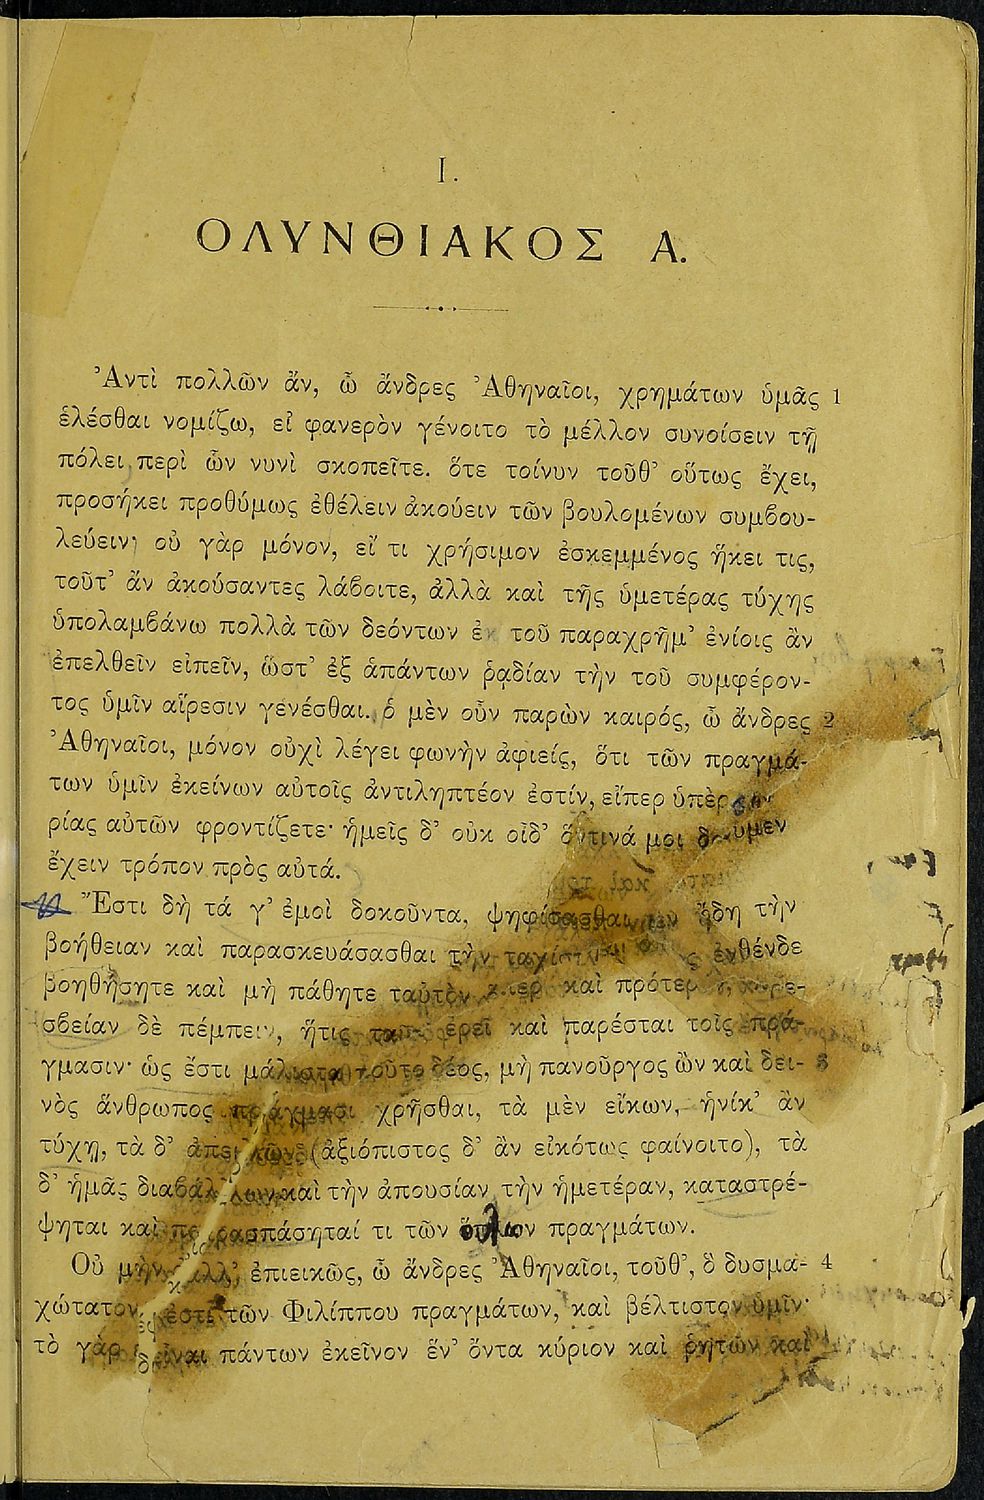 Ι.
ΟΛΥΝΘΙΑΚΟΣ Α.
Ἀντὶ πολλῶν ἄν, ὦ ἄνδρες Ἀθηναῖοι, χρημάτων ὑμᾶς 1
ἑλέσθαι νομίζω, εἰ φανερὸν γένοιτο τὸ μέλλον συνοίσειν τῇ
πόλει περὶ ὧν νυνὶ σκοπεῖτε. ὅτε τοίνυν τοῦθ’ οὕτως ἔχει,
προσήκει προθύμως ἐθέλειν ἀκούειν τῶν βουλομένων συμβου-
λεύειν· οὐ γὰρ μόνον, εἴ τι χρήσιμον ἐσκεμμένος ἥκει τις,
τοῦτ’ ἂν ἀκούσαντες λάβοιτε, ἀλλὰ καὶ τῆς ὑμετέρας τύχης
ὑπολαμβάνω πολλὰ τῶν δεόντων ἐκ τοῦ παραχρῆμ’ ἐνίοις ἂν
ἐπελθεῖν εἰπεῖν, ὥστ’ ἐξ ἁπάντων ῥᾳδίαν τὴν τοῦ συμφέρον-
τος ὑμῖν αἵρεσιν γενέσθαι. ὁ μὲν οὖν παρὼν καιρός, ὦ ἄνδρες 2
Ἀθηναῖοι, μόνον οὐχὶ λέγει φωνὴν ἀφιείς, ὅτι τῶν πραγμά-
των ὑμῖν ἐκείνων αὐτοῖς ἀντιληπτέον ἐστίν, εἴπερ ὑπὲρ
ρίας αὐτῶν φροντίζετε· ἡμεῖς δ’ οὐκ οἶδ’ ὅντινά μοι
ἔχειν τρόπον πρὸς αὐτά.
Ἔστι δὴ τά γ’ ἐμοὶ δοκοῦντα, ψηφίσασθαι μὲν ἤδη τὴν
βοήθειαν καὶ παρασκευάσασθαι τὴν ἐνθένδε
βοηθήσητε καὶ μὴ πάθητε ταὐτὸν καὶ
σβείαν δὲ πέμπειν, ἥτις ταῦτ’ ἐρεῖ καὶ παρέσται τοῖς πρά-
γμασιν· ὡς ἔστι μάλιστα τοῦτο δέος, μὴ πανοῦργος ὢν καὶ δει- 3
νὸς ἄνθρωπος πράγμασι χρῆσθαι, τὰ μὲν εἴκων, ἡνίκ’ ἂν
τύχῃ, τὰ δ’ (ἀξιόπιστος δ’ ἂν εἰκότως φαίνοιτο), τὰ
δ’ ἡμᾶς διαβάλλων καὶ τὴν ἀπουσίαν τὴν ἡμετέραν, καταστρέ-
ψηται καὶ παρασπάσηταί τι τῶν ὅλων πραγμάτων.
Οὐ μὴν ἀλλ’ ἐπιεικῶς, ὦ ἄνδρες Ἀθηναῖοι, τοῦθ’, ὃ δυσμα- 4
χώτατόν ἐστι τῶν Φιλίππου πραγμάτων, καὶ βέλτιστον ὑμῖν·
τὸ γὰρ εἶναι πάντων ἐκεῖνον ἕν’ ὄντα κύριον καὶ ῥητῶν καὶ